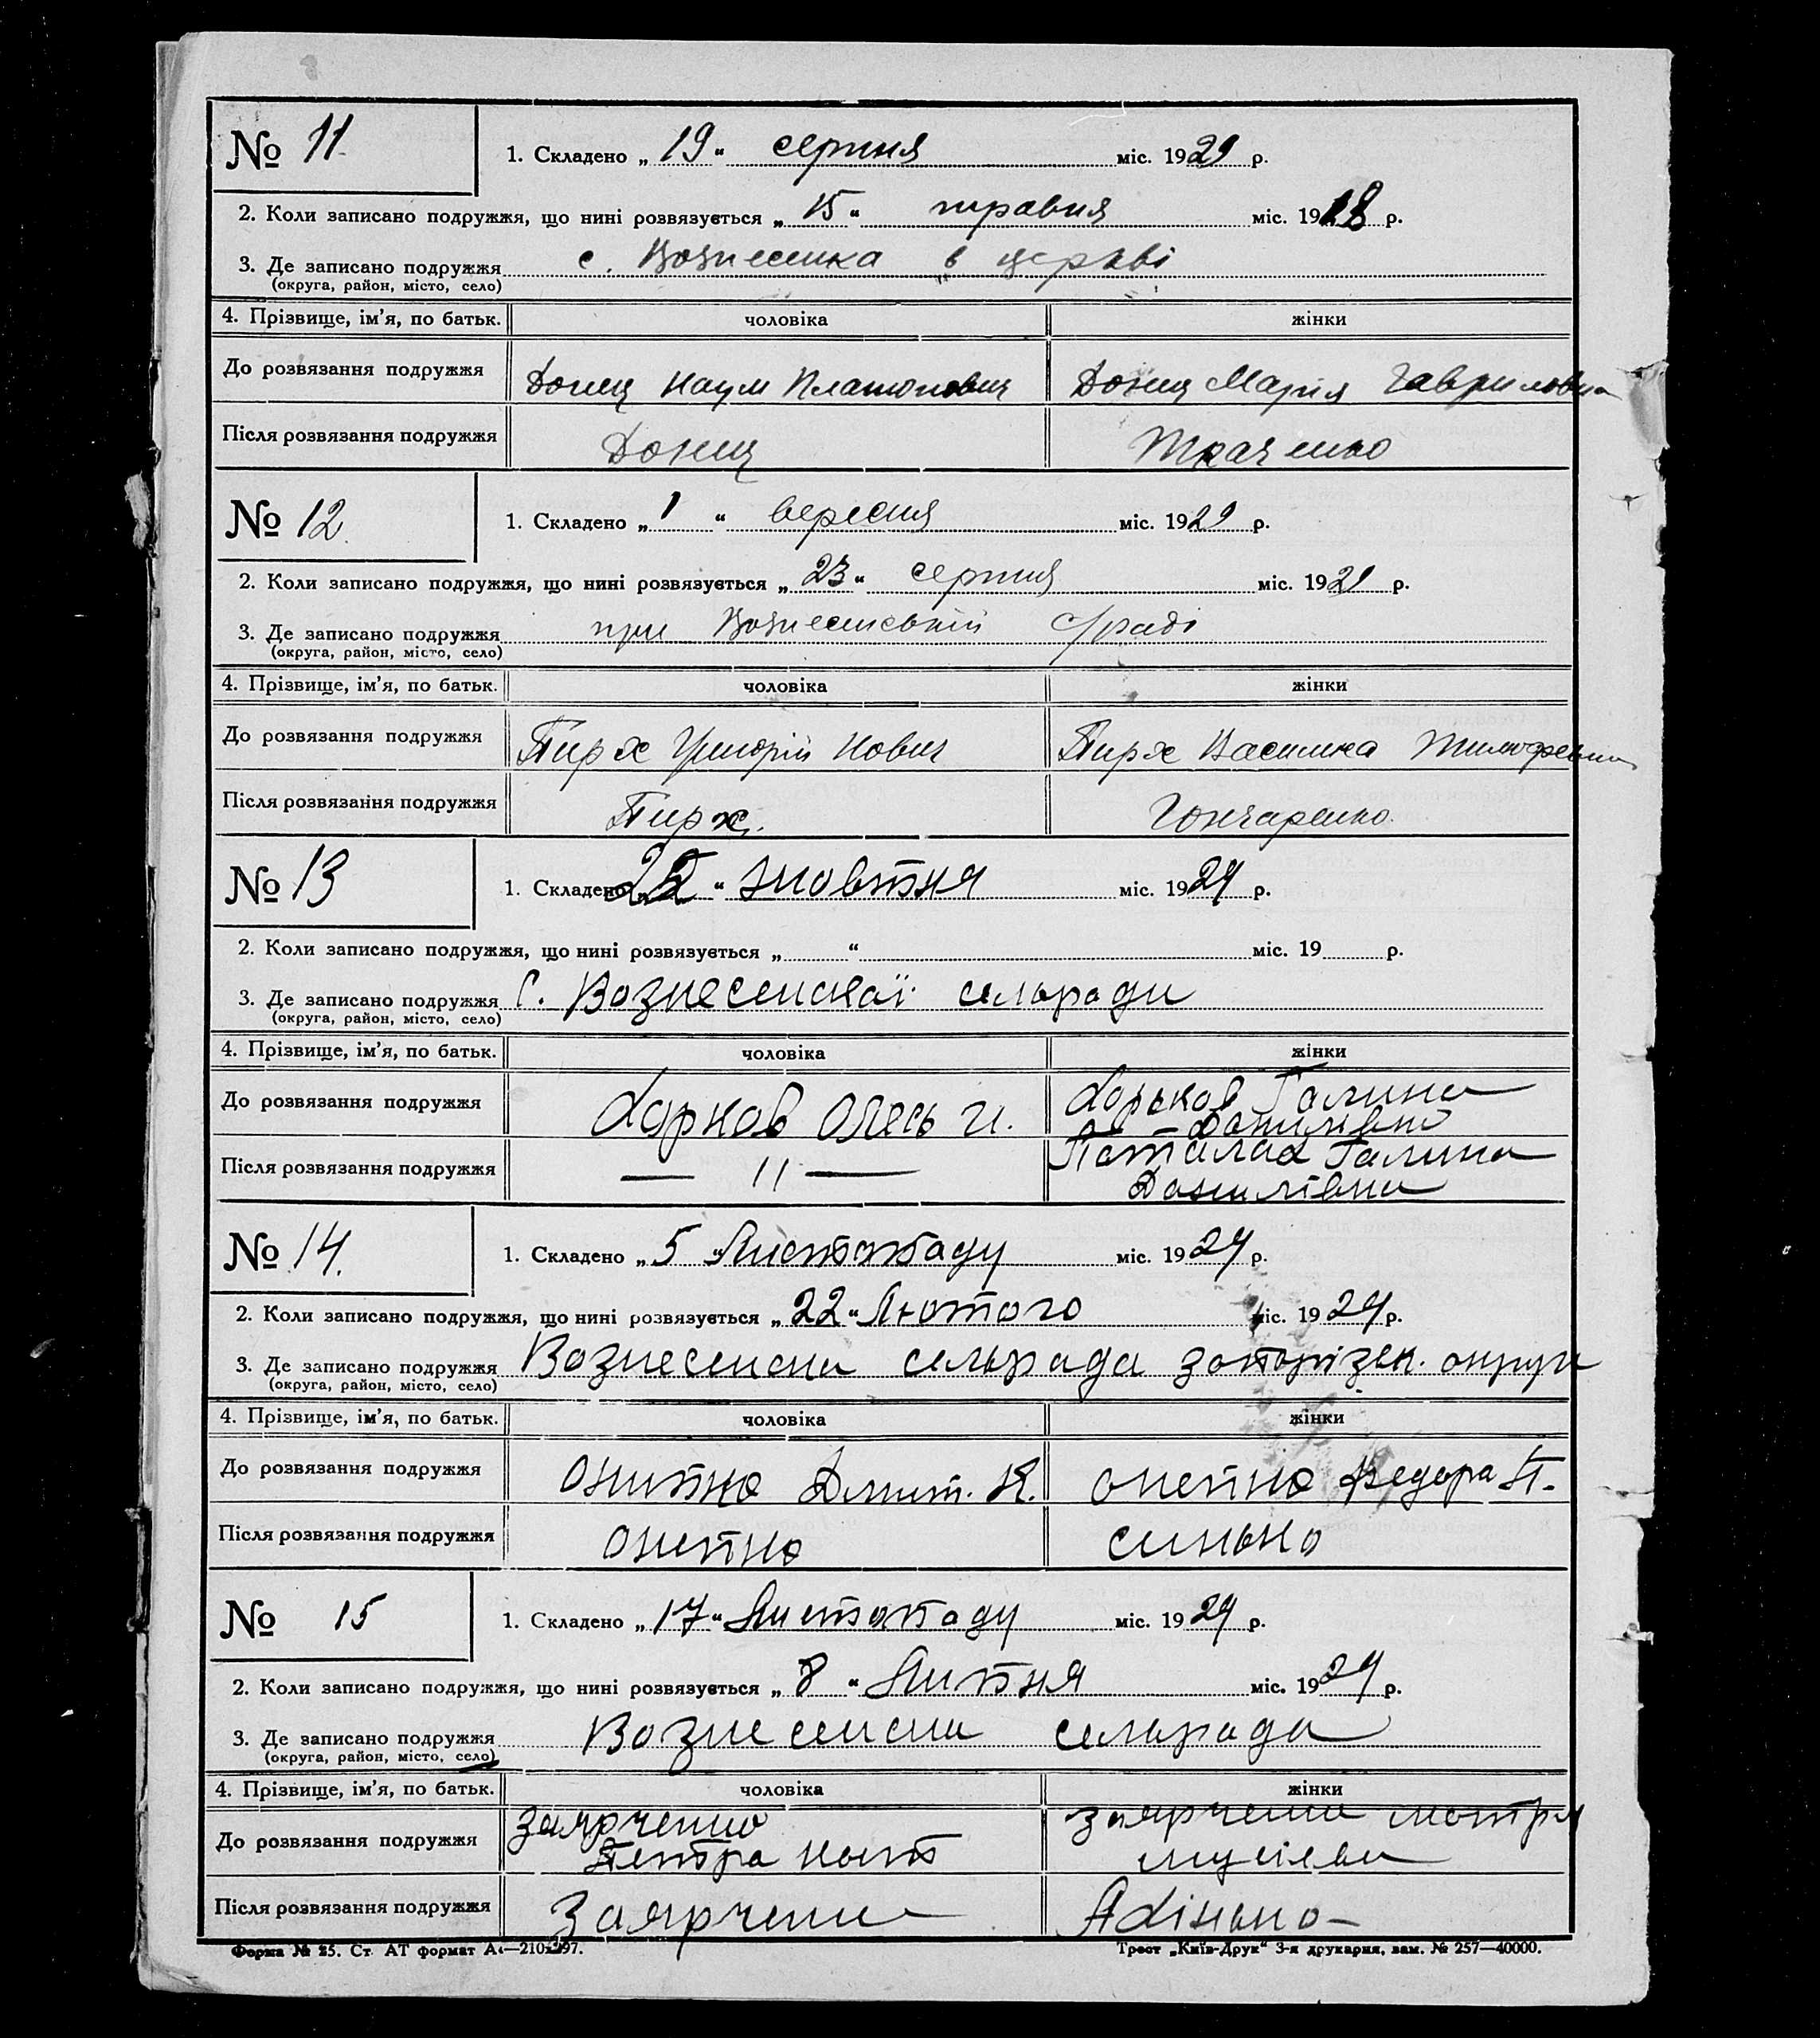 № 11. 1. Складено „ 19 “ серпня міс. 1929 р.
2. Коли записано подружжя, що нині розвязується „ 15 “ травня міс. 1918 р.
3. Де записано подружжя с. Вознесенка в церкві
(округа, район, місто, село)
4. Прізвище, ім’я, по батьк. чоловіка жінки
До розвязання подружжя Донец Наум Платонович Донец Мария Гавриловна
Після розвязання подружжя Донец Ткаченко
№ 12. 1. Складено „ 1 “ вересня міс. 1929 р.
2. Коли записано подружжя, що нині розвязується „ 23 “ серпня міс. 1929 р.
3. Де записано подружжя при Вознесенській с/раді
(округа, район, місто, село)
4. Прізвище, ім’я, по батьк. чоловіка жінки
До розвязання подружжя Пирж Григорій Пирж Василина
Після розвязання подружжя Пирж. Гончаренко.
№ 13 1. Складено „ “ жовтня міс. 1929 р.
2. Коли записано подружжя, що нині розвязується „ “ міс. 19 р.
3. Де записано подружжя С. Вознесенської сельради
(округа, район, місто, село)
4. Прізвище, ім’я, по батьк. чоловіка жінки
До розвязання подружжя Олесь Галина
Данилівна
Після розвязання подружжя — 11 — Галина
Данилівна
№ 14. 1. Складено „ 5 “ Листопаду міс. 1929 р.
2. Коли записано подружжя, що нині розвязується „ 22 “ Лютого міс. 1929 р.
3. Де записано подружжя Вознесенска сельрада запорізьк. округи
(округа, район, місто, село)
4. Прізвище, ім’я, по батьк. чоловіка жінки
До розвязання подружжя Дмит. К. Федора П.
Після розвязання подружжя синько
№ 15 1. Складено „ 17 “ Листопаду міс. 1929 р.
2. Коли записано подружжя, що нині розвязується „ 8 “ Липня міс. 1929 р.
3. Де записано подружжя Вознесенска сельрада
(округа, район, місто, село)
4. Прізвище, ім’я, по батьк. чоловіка жінки
До розвязання подружжя мотря
Петра
Після розвязання подружжя
Форма № 25. Ст. АТ формат
Трест „Київ-Друк“ 3-я друкарня, зам. № 257—40000.